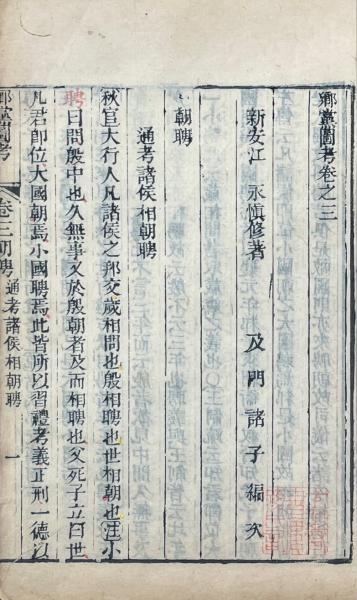 鄉黨圖考卷之三
新安江 永慎修著 及門諸子編次
朝聘
通考諸侯相朝聘
秋官大行人凡諸侯之邦交歲相問也殷相聘也世相朝也注小
聘曰問殷中也久無事又於殷朝者及而相聘也父死子立曰世
凡君即位大國朝焉小國聘焉此皆所以習禮考義正刑一德以
鄉黨圖考 卷三朝聘 通考諸侯相朝聘 一